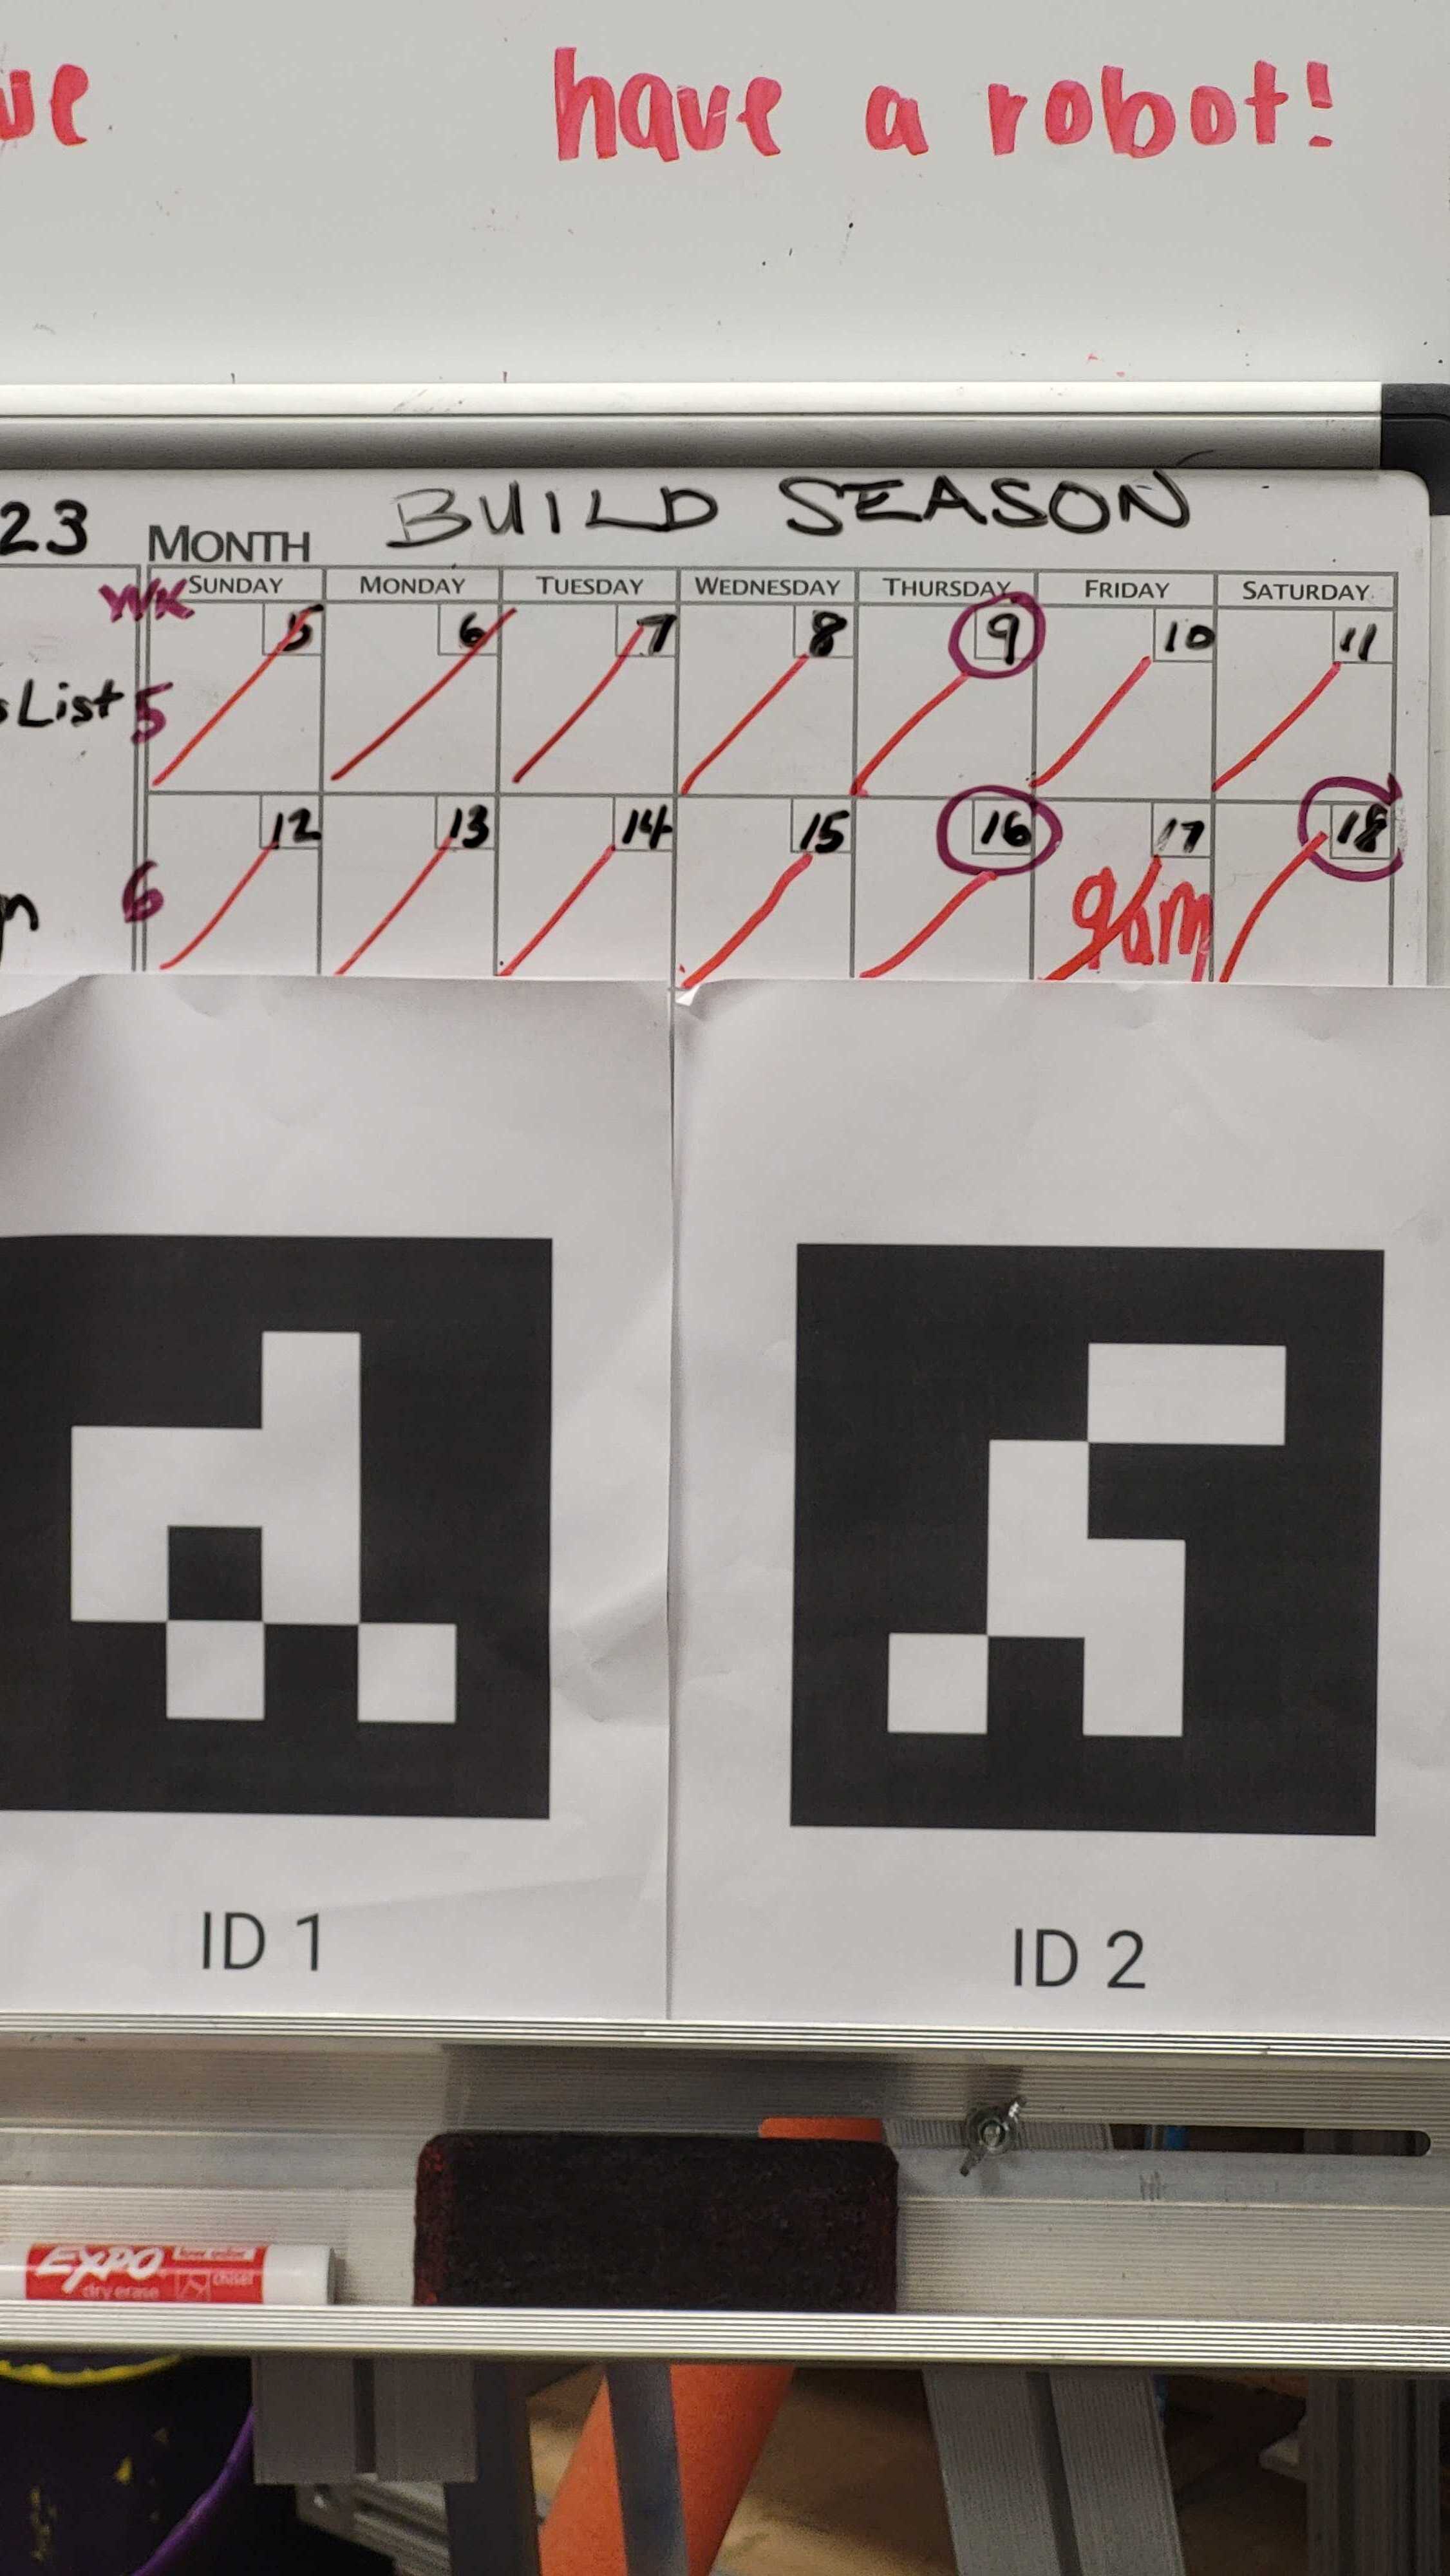 ve have a robot!
23 MONTH BUILD SEASON
WK SUNDAY MONDAY TUESDAY WEDNESDAY THURSDAY FRIDAY SATURDAY
5 6 7 8 9 10 11
List 5
12 13 14 15 16 17 18
6 9am
ID 1 ID 2
EXPO
dry erase chisel